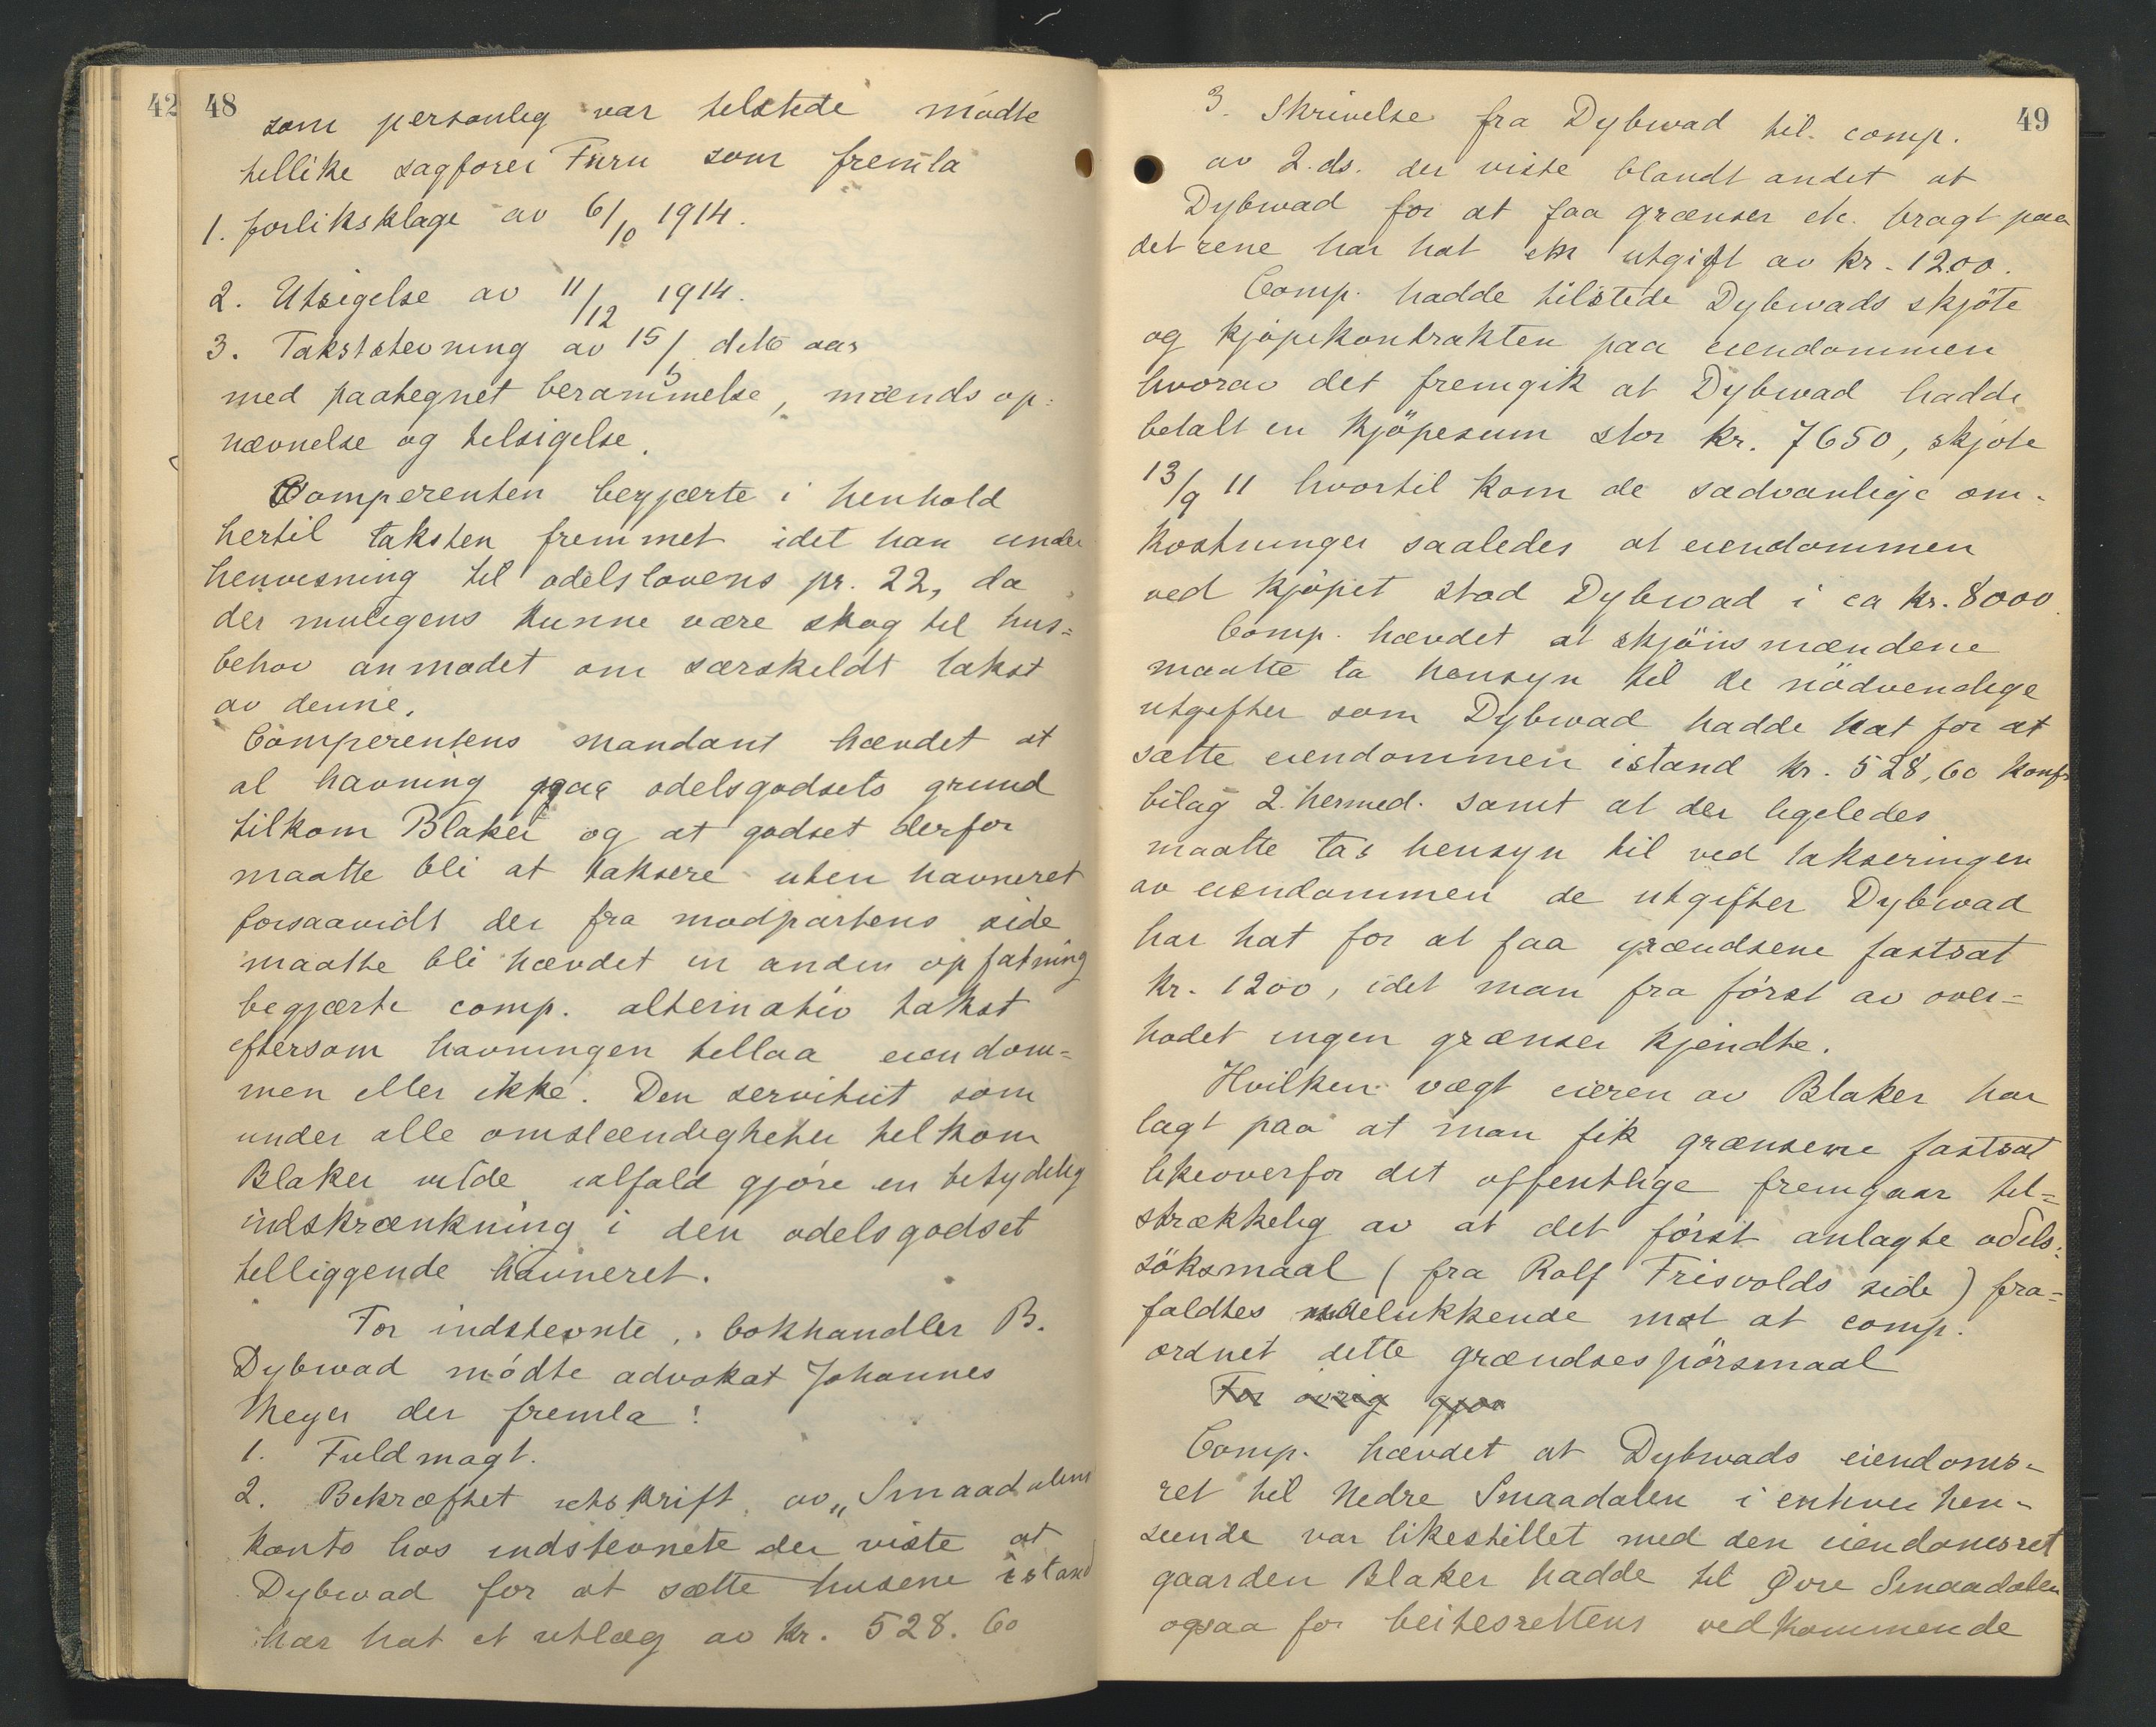 42
48
som personlig var tilstede mödte
tillike sagförer Furu som fremla
1. forliksklage av 6/10 1914.
2. Utsigelse av 11/12 1914.
3. Takststevning av 15/5 dette aar
med paategnet berammelse, mænds op-
nævnelse og tilsigelse.
Comperenten begjærte i henhold
hertil taksten fremmet idet han under
henvisning til odelslovens pr. 22, da
der muligens kunne være skog til hus=
behov anmodet om særskildt takst
av denne.
Comperentens mandant hævdet at
al havning paa odelsgodsets grund
tilkom Blaker og at godset derfor
maatte bli at taksere uten havneret
forsaavidt der fra modpartens side
maatte bli hævdet en anden opfatning
begjærte comp. alternativ takst
eftersom havningen tillaa eiendom=
men eller ikke. Den servitut som
under alle omstændigheter tilkom
Blaker vilde ialfald gjöre en betydelig
indskrænkning i den odelsgodset
tilliggende havneret.
For indstevnte, bokhandler B.
Dybwad mödte advokat Johannes
Meyer der fremla:
1. Fuldmagt.
2. Bekræftet utskrift av „Smaadalens
konto hos indstevnete der viste at
Dybwad for at sætte husene istand
har hat et utlæg av kr. 528.60
49
3. Skrivelse fra Dybwad til comp.
av 2. ds. der viste blandt andet at
Dybwad for at faa grænser etc. bragt paa
det rene har hat en utgift av kr. 1200.
Comp. hadde tilstede Dybwads skjöte
og kjöpekontrakten paa eiendommen
hvorav det fremgik at Dybwad hadde
betalt en kjöpesum stor kr. 7650, skjöte
13/9 11 hvortil kom de sædvanlige om-
kostninger saaledes at eiendommen
ved kjöpet stod Dybwad i ca kr. 8000.
Comp. hævdet at skjönsmændene
maatte ta hensyn til de nödvendige
utgifter som Dybwad hadde hat for at
sætte eiendommen istand kr. 528,60 konfr
bilag 2 hermed. samt at der ligeledes
maatte tas hensyn til ved takseringen
av eiendommen de utgifter Dybwad
har hat for at faa grændsene fastsat
kr. 1200, idet man fra först av over=
hodet ingen grænser kjendte.
Hvilken vægt eieren av Blaker har
lagt paa at man fik grænsene fastsat
likeoverfor det offentlige fremgaar til=
strækkelig av at det först anlagte odels=
söksmaal (fra Rolf Frisvolds side) fra=
faldtes udelukkende mot at comp.
ordnet dette grændsespörsmaal
For övrig gjor
Comp. hævdet at Dybwads eiendoms-
ret til Nedre Smaadalen i enhver hen-
seende var likestillet med den eiendomsret
gaarden Blaker hadde til Övre Smaadalen
ogsaa for beitesrettens vedkommende